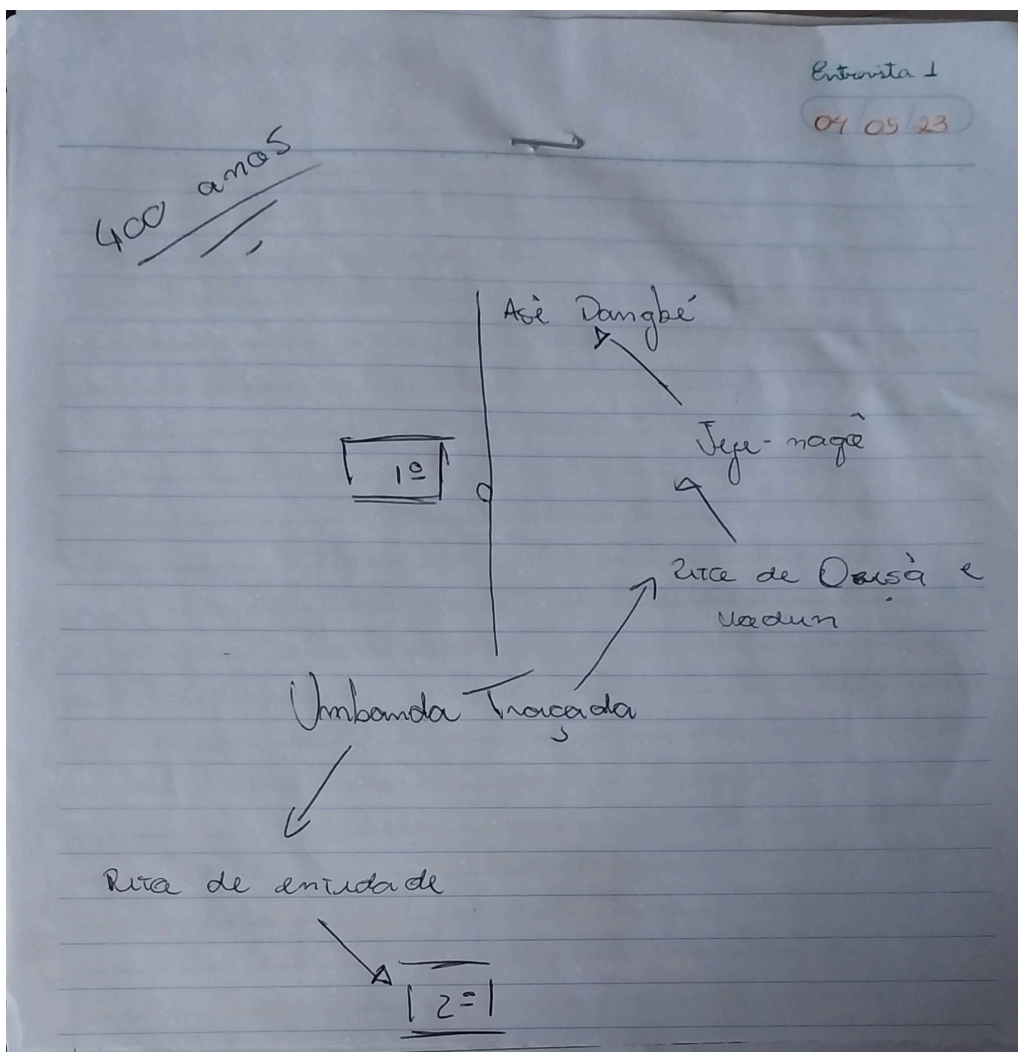 Entrevista 1
04 05 23
400 anos
Asè Dangbé
Jeje-nagô
1º
Rito de Orisà e
Vodun
Umbanda Traçada
Rito de entidade
2º